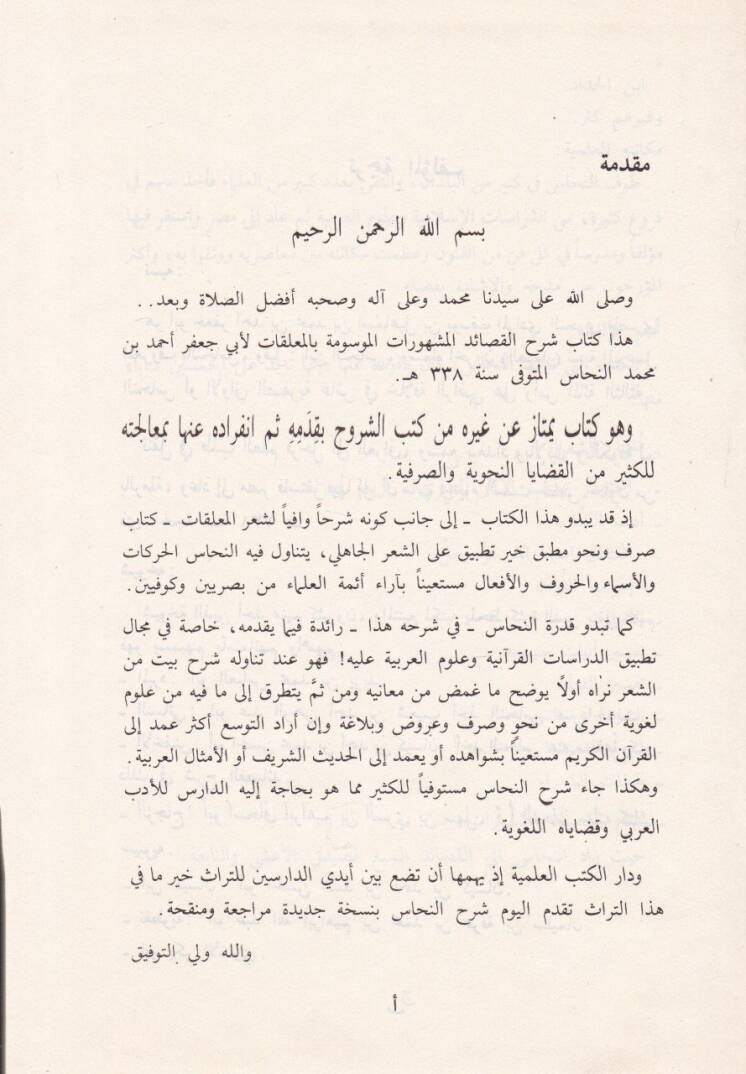 مقدمة
بسم الله الرحمن الرحيم
وصلى الله على سيدنا محمد وعلى آله وصحبه أفضل الصلاة وبعد..
هذا كتاب شرح القصائد المشهورات الموسومة بالمعلقات لأبي جعفر أحمد بن
محمد النحاس المتوفى سنة ٣٣٨ هـ.
وهو كتاب يمتاز عن غيره من كتب الشروح بقِدَمِهِ ثم انفراده عنها بمعالجته
للكثير من القضايا النحوية والصرفية.
إذ قد يبدو هذا الكتاب ـ إلى جانب كونه شرحاً وافياً لشعر المعلقات ـ كتاب
صرف ونحو مطبق خير تطبيق على الشعر الجاهلي، يتناول فيه النحاس الحركات
والأسماء والحروف والأفعال مستعيناً بآراء أئمة العلماء من بصريين وكوفيين.
كما تبدو قدرة النحاس ـ في شرحه هذا ـ رائدة فيما يقدمه، خاصة في مجال
تطبيق الدراسات القرآنية وعلوم العربية عليه! فهو عند تناوله شرح بيت من
الشعر نراه أولاً يوضح ما غمض من معانيه ومن ثمَّ يتطرق إلى ما فيه من علوم
لغوية أخرى من نحو وصرف وعروض وبلاغة وإن أراد التوسع أكثر عمد إلى
القرآن الكريم مستعيناً بشواهده أو يعمد إلى الحديث الشريف أو الأمثال العربية.
وهكذا جاء شرح النحاس مستوفياً للكثير مما هو بحاجة إليه الدارس للأدب
العربي وقضاياه اللغوية.
ودار الكتب العلمية إذ يهمها أن تضع بين أيدي الدارسين للتراث خير ما في
هذا التراث تقدم اليوم شرح النحاس بنسخة جديدة مراجعة ومنقحة.
والله ولي التوفيق
أ